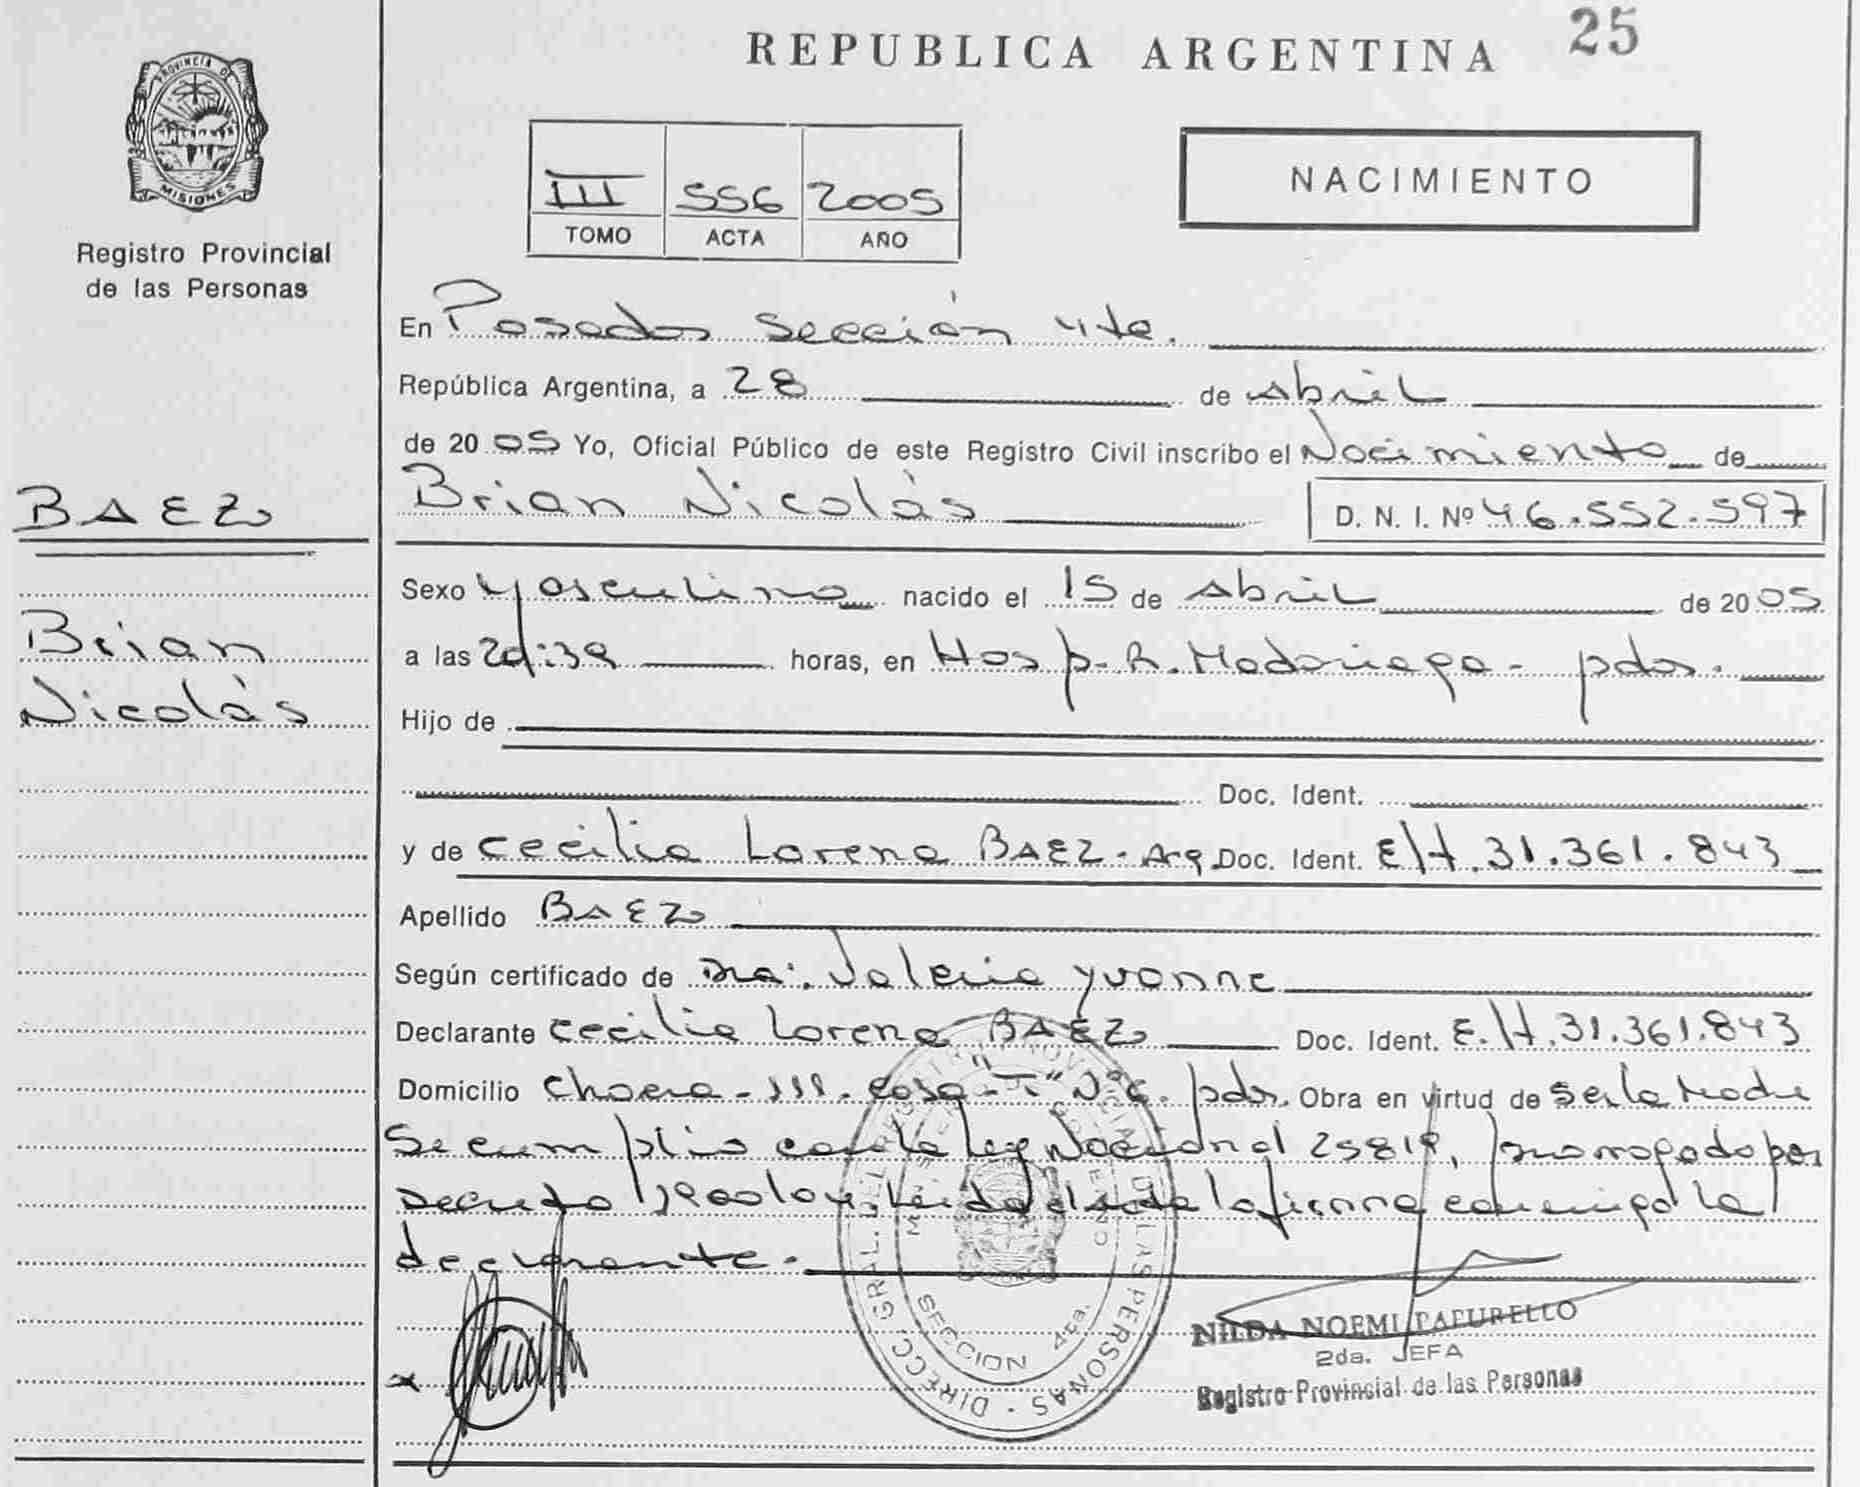 REPUBLICA ARGENTINA 25
PROVINCIA DE
MISIONES
Registro Provincial
de las Personas
III 556 2005
TOMO ACTA AÑO
NACIMIENTO
En Posadas Sección 4ta.
República Argentina, a 28 de Abril
de 2005 Yo, Oficial Público de este Registro Civil inscribo el Nacimiento de
BAEZ
Brian Nicolás D. N. I. Nº 46.552.597
Brian
Nicolás
Sexo Masculino nacido el 15 de Abril de 2005
a las horas, en Hosp. R. Madariaga - pdas.
Hijo de
Doc. Ident.
y de Cecilia Lorena BAEZ - Arg. Doc. Ident. 31.361.843
Apellido BAEZ
Según certificado de Dra. Valeria Yvonne
Declarante Cecilia Lorena BAEZ Doc. Ident. 31.361.843
Domicilio III. Casa Nº 6. pdas. Obra en virtud de ser la Madre
Se cumplio con la ley Nacional 25819, por
Decreto Leida la firma conmigo la
declarante.
DIRECC. GRAL. DEL REGISTRO PROVINCIAL DE LAS PERSONAS
SECCION 4ta.
NILDA NOEMI PAPURELLO
2da. JEFA
Registro Provincial de las Personas